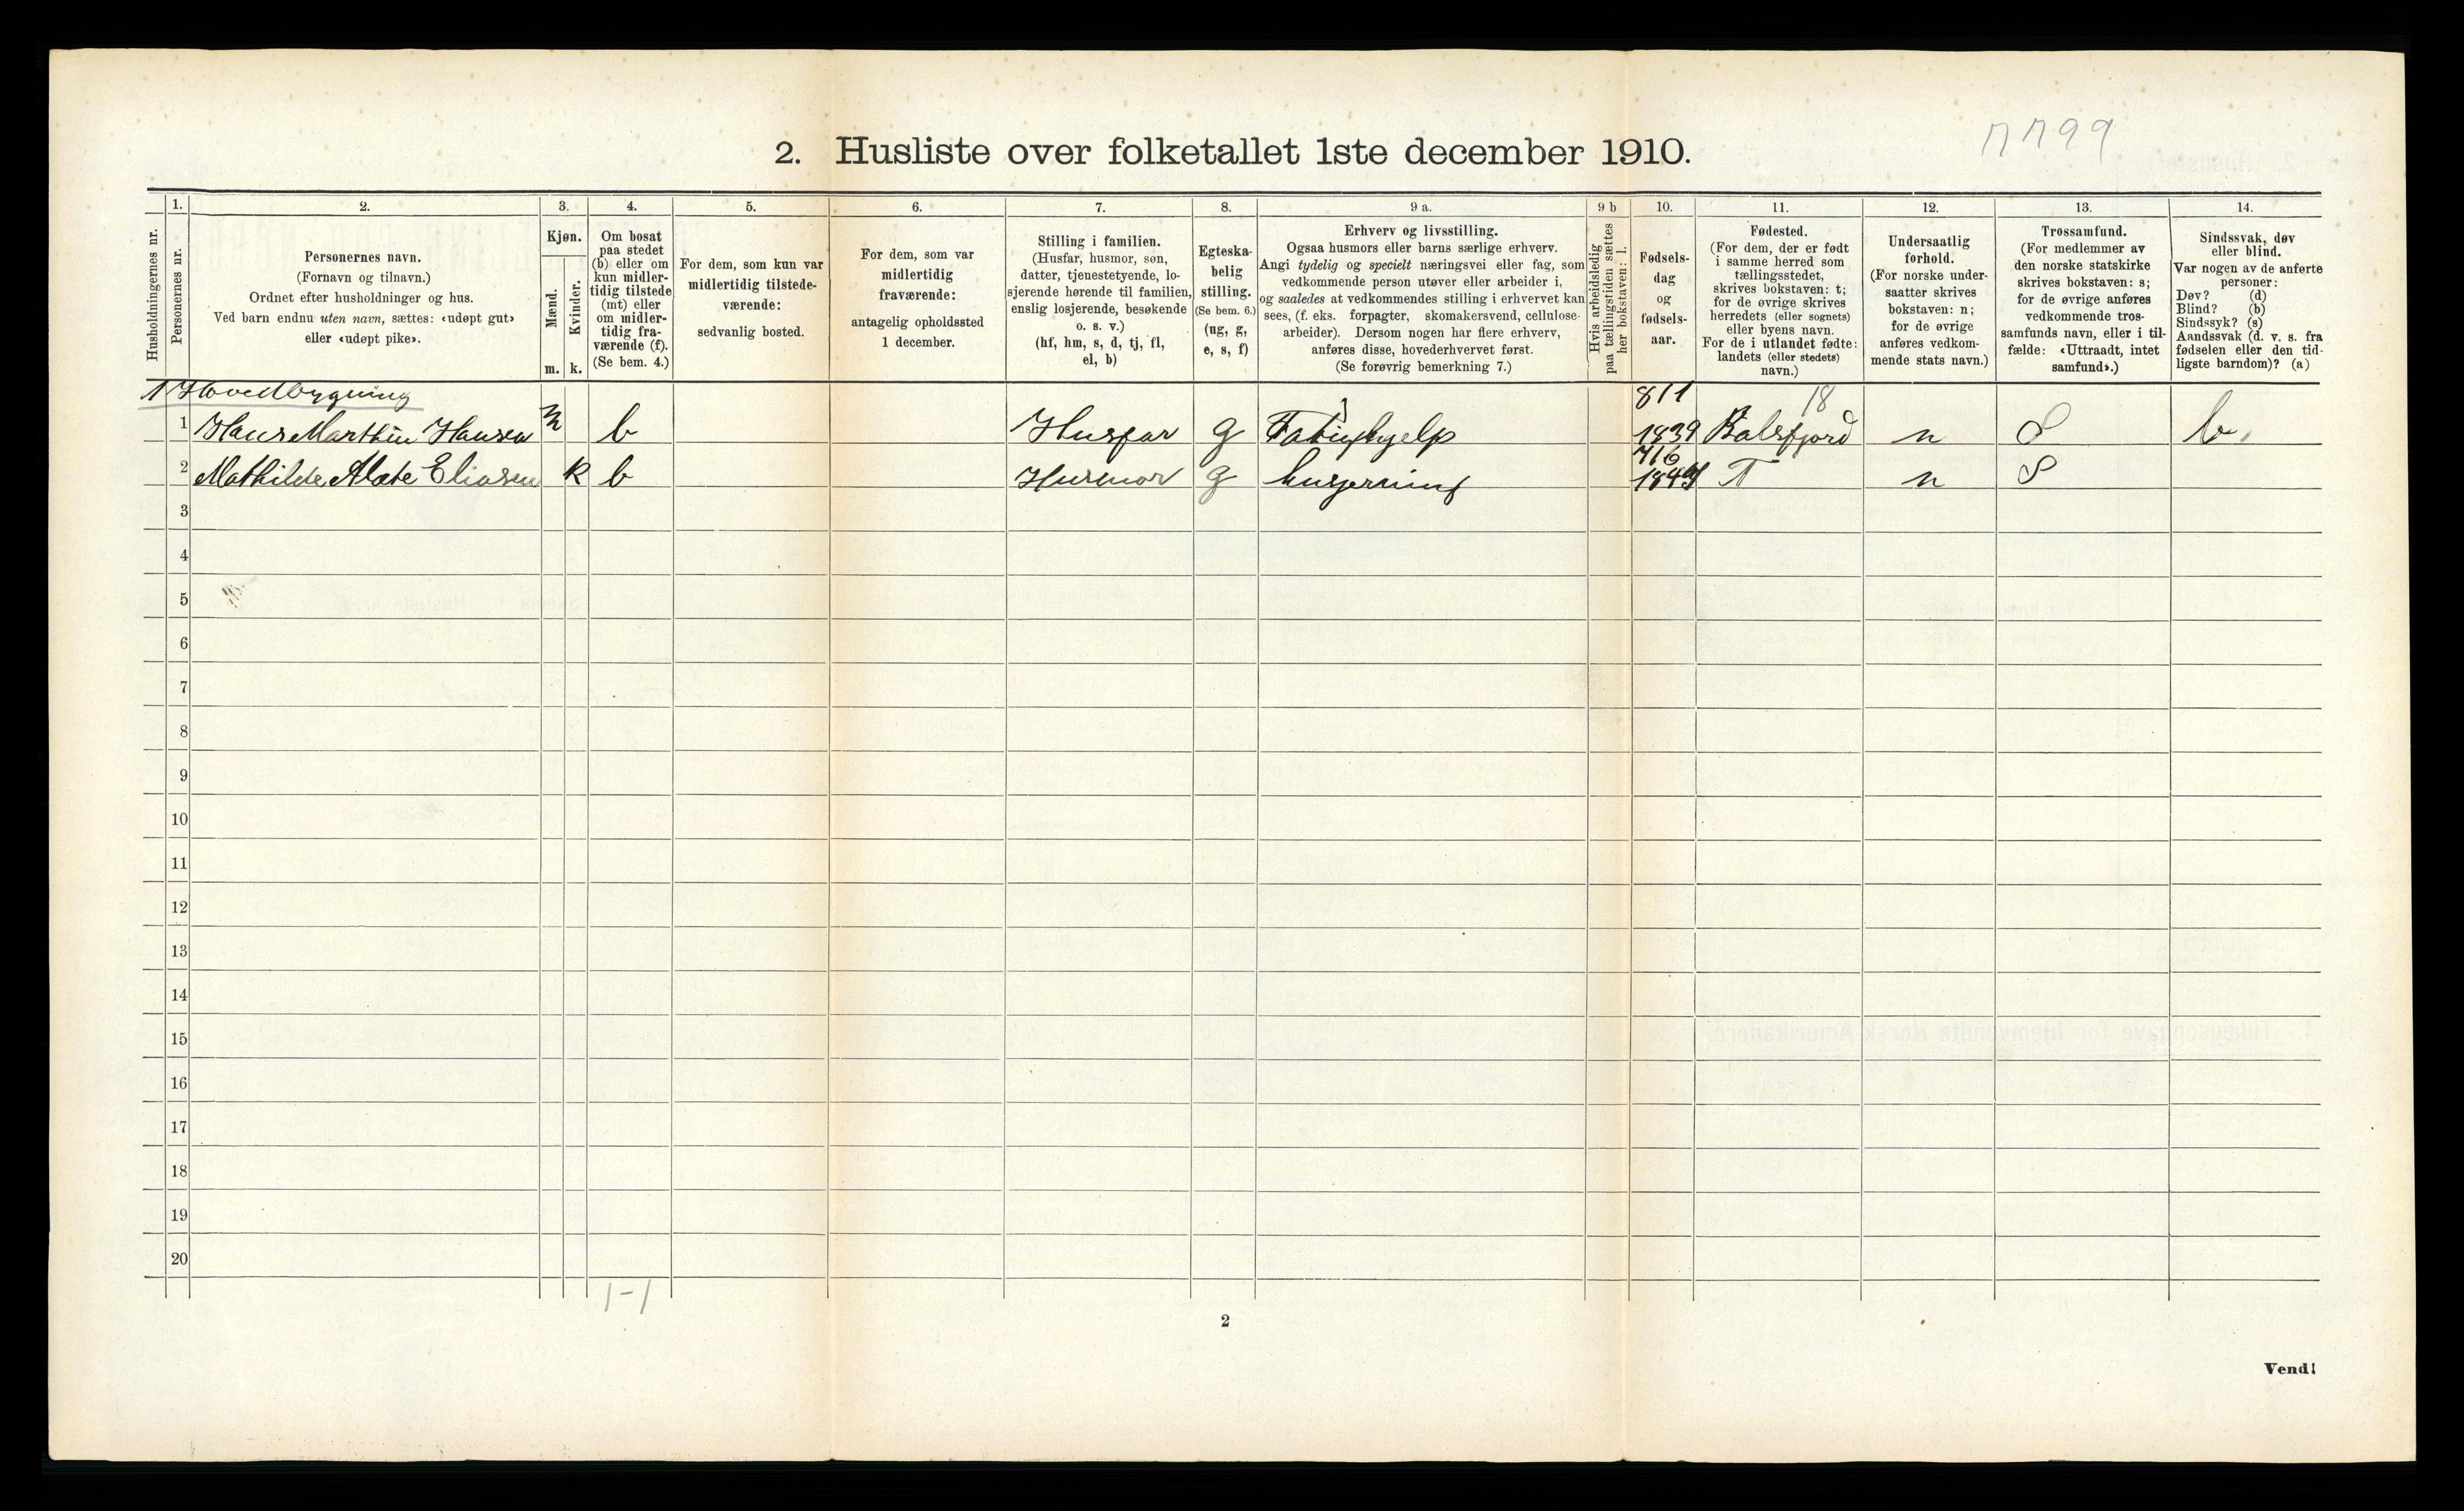 7799
2. Husliste over folketallet 1ste december 1910.
Husholdningernes nr.
1.
Personernes nr.
2.
Personernes navn.
(Fornavn og tilnavn.)
Ordnet efter husholdninger og hus.
Ved barn endnu uten navn, sættes: «udøpt gut»
eller «udøpt pike».
3.
Kjøn.
Mænd.
Kvinder.
m. k.
4.
Om bosat
paa stedet
(b) eller om
kun midler-
tidig tilstede
(mt) eller
om midler-
tidig fra-
værende (f).
(Se bem. 4.)
5.
For dem, som kun var
midlertidig tilstede-
værende:
sedvanlig bosted.
6.
For dem, som var
midlertidig
fraværende:
antagelig opholdssted
1 december.
7.
Stilling i familien.
(Husfar, husmor, søn,
datter, tjenestetyende, lo-
sjerende hørende til familien,
enslig losjerende, besøkende
o. s. v.)
(hf, hm, s, d, tj, fl,
el, b)
8.
Egteska-
belig
stilling.
(Se bem. 6.)
(ug, g,
e, s, f)
9 a.
Erhverv og livsstilling.
Ogsaa husmors eller barns særlige erhverv.
Angi tydelig og specielt næringsvei eller fag, som
vedkommende person utøver eller arbeider i,
og saaledes at vedkommendes stilling i erhvervet kan
sees, (f. eks. forpagter, skomakersvend, cellulose-
arbeider). Dersom nogen har flere erhverv,
anføres disse, hovederhvervet først.
(Se forøvrig bemerkning 7.)
9 b
Hvis arbeidsledig
paa tællingstiden sættes
her bokstaven: l.
10.
Fødsels-
dag
og
fødsels-
aar.
11.
Fødested.
(For dem, der er født
i samme herred som
tællingsstedet,
skrives bokstaven: t;
for de øvrige skrives
herredets (eller sognets)
eller byens navn.
For de i utlandet fødte:
landets (eller stedets)
navn.)
12.
Undersaatlig
forhold.
(For norske under-
saatter skrives
bokstaven: n;
for de øvrige
anføres vedkom-
mende stats navn.)
13.
Trossamfund.
(For medlemmer av
den norske statskirke
skrives bokstaven: s;
for de øvrige anføres
vedkommende tros-
samfunds navn, eller i til-
fælde: «Uttraadt, intet
samfund».)
14.
Sindssvak, døv
eller blind.
Var nogen av de anførte
personer:
Døv? (d)
Blind? (b)
Sindssyk? (s)
Aandssvak (d. v. s. fra
fødselen eller den tid-
ligste barndom)? (a)
1 Hovedbygning 8/11 18
1 Hans Marthin Hansen m b Husfar g Fatighjelp 1839 Balsfjord n S b.
7/6
2 Mathilde Alate Eliasen k b Husmor g husgerning T n S
3
4
5
6
7
8
9
10
11
12
13
14
15
16
17
18
19
20
1-1
2
Vend!